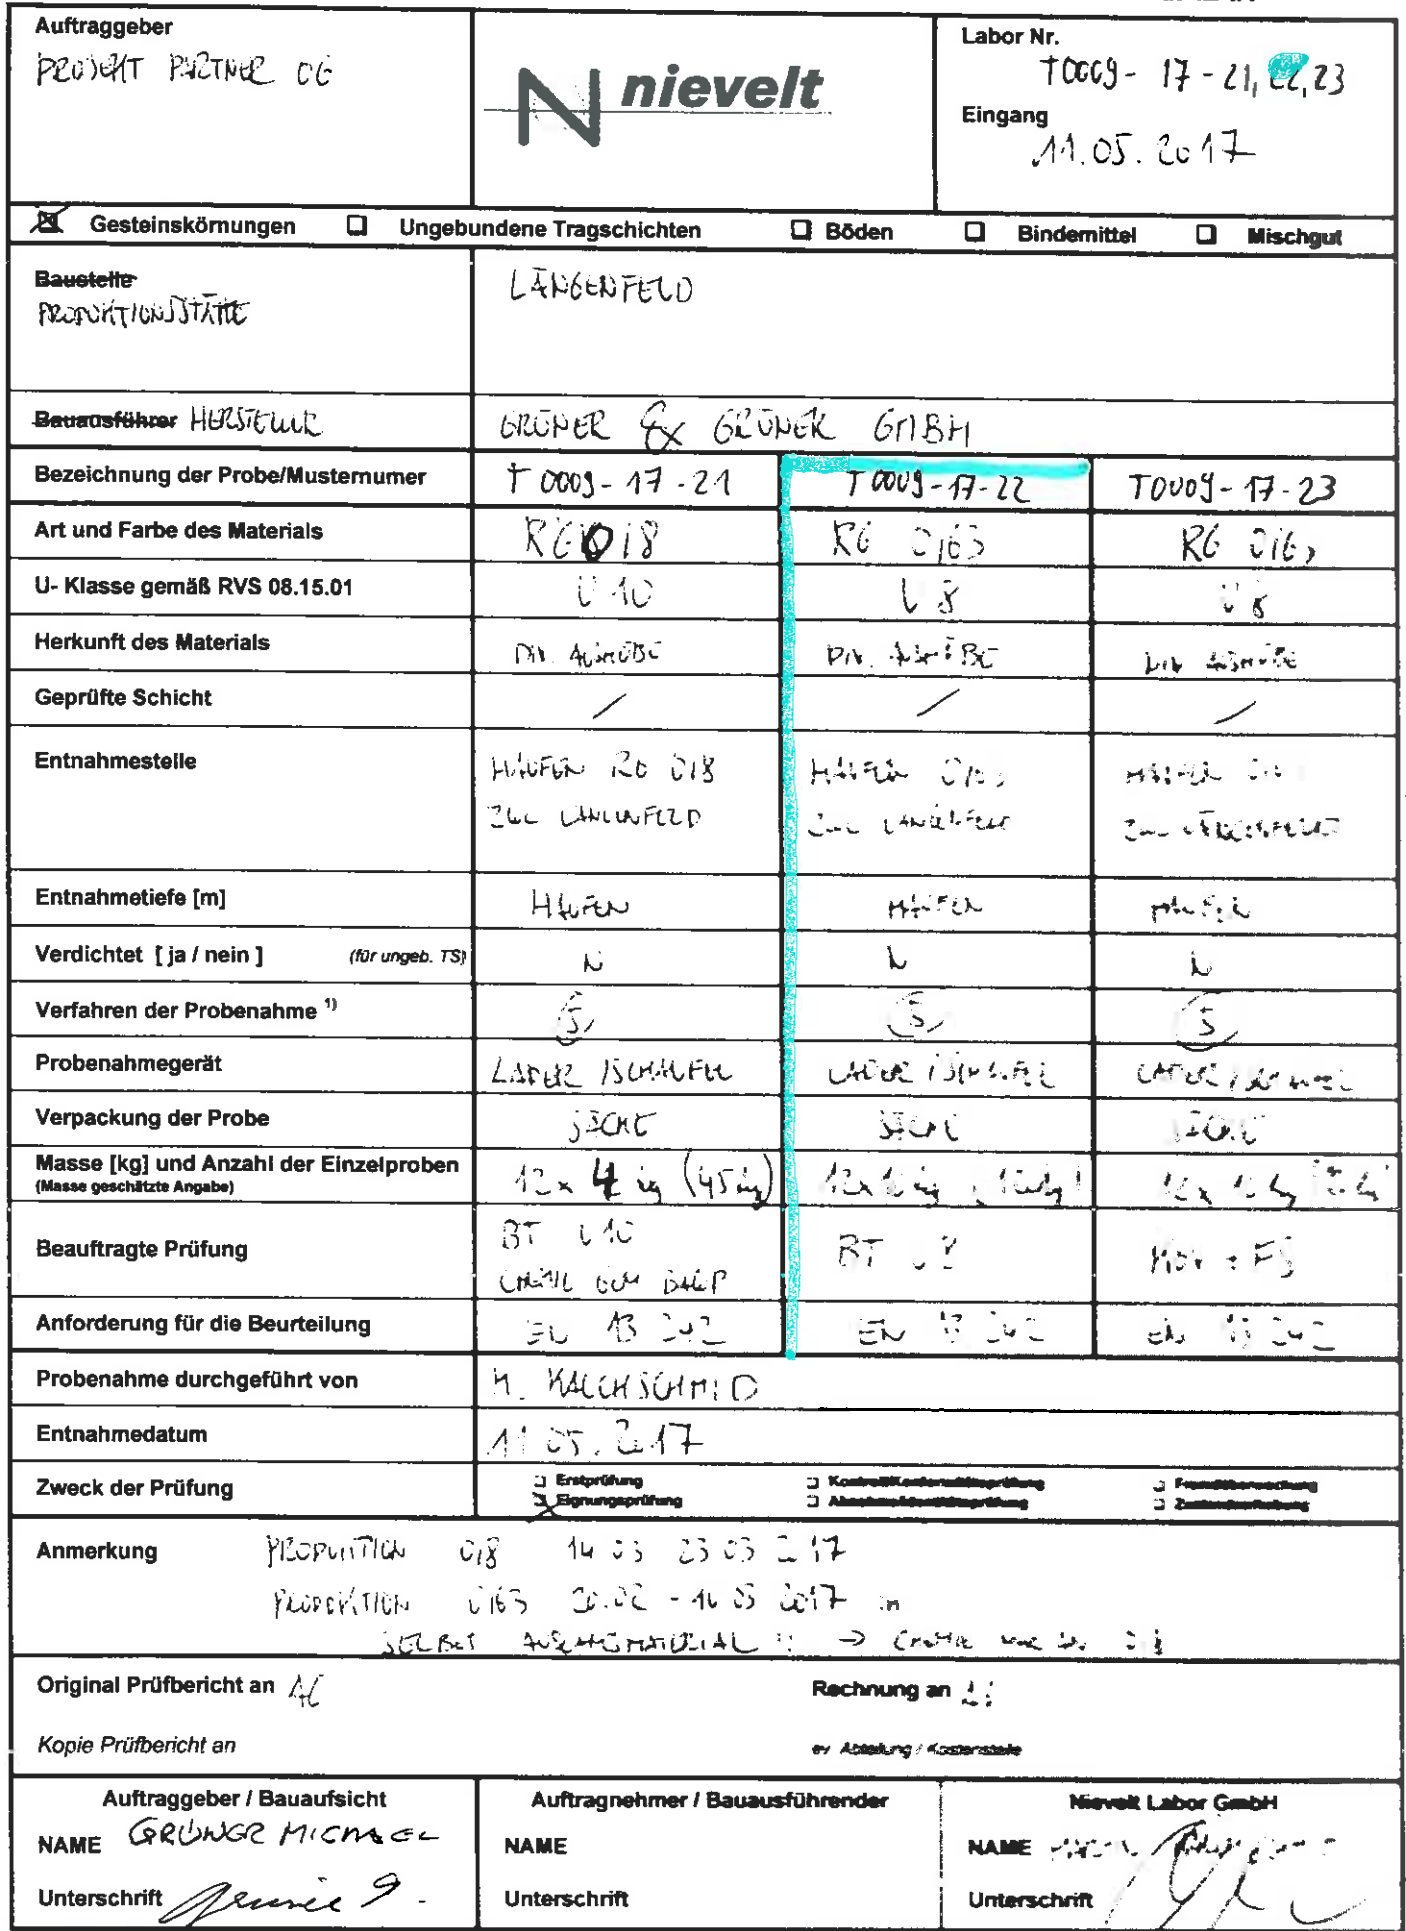 Auftraggeber
PROJEKT PARTNER OG
nievelt
Labor Nr.
T0009 - 17 - 21, 22, 23
Eingang
11.05.2017
Gesteinskörnungen Ungebundene Tragschichten Böden Bindemittel Mischgut
Baustelle LÄNGENFELD
PRODUKTIONSSTÄTTE
Bauausführer HERSTELLER GRÜNER & GRÜNER GMBH
Bezeichnung der Probe/Musternumer T0009-17-21 T0009-17-22 T0009-17-23
Art und Farbe des Materials RG 0/8 RG 0/63 RG 0/63
U- Klasse gemäß RVS 08.15.01 U 10 U 8 U 8
Herkunft des Materials DIV. AUSHÜBE DIV. AUSHÜBE DIV. AUSHÜBE
Geprüfte Schicht / / /
Entnahmestelle HAUFEN RG 0/8 HAUFEN 0/63 HAUFEN
ZWL LÄNGENFELD ZWL LÄNGENFELD ZWL LÄNGENFELD
Entnahmetiefe [m] HAUFEN HAUFEN HAUFEN
Verdichtet [ ja / nein ] (für ungeb. TS) N N N
Verfahren der Probenahme 1) 5 5 5
Probenahmegerät LADER / SCHAUFEL LADER / SCHAUFEL LADER / SCHAUFEL
Verpackung der Probe SÄCKE SÄCKE SÄCKE
Masse [kg] und Anzahl der Einzelproben 12 x 4 kg (45 kg) 12 x 10 kg
(Masse geschätzte Angabe)
Beauftragte Prüfung BT U10 BT U8
Anforderung für die Beurteilung EN 13 242 EN 13 242 EN 13 242
Probenahme durchgeführt von M. KALCHSCHMID
Entnahmedatum 11.05.2017
Zweck der Prüfung Erstprüfung Kontroll/Konformitätsprüfung Fremdüberwachung
Eignungsprüfung Abnahme/Identitätsprüfung Zustandserhebung
Anmerkung PRODUKTION 0/8 14 03 23 03 2017
PRODUKTION 0/63 20.02 - 16 03 2017
SELBES
Original Prüfbericht an AG Rechnung an
Kopie Prüfbericht an ev Abteilung / Kostenstelle
Auftraggeber / Bauaufsicht Auftragnehmer / Bauausführender Nievelt Labor GmbH
NAME GRÜNER MICHAEL NAME NAME
Unterschrift Unterschrift Unterschrift